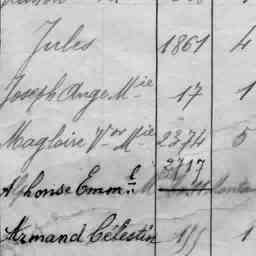 Jules 1861 4
Joseph Ange M.ie 17 1
Magloire V.or M.ie 2374 5
3717
Alphonse Emm.l
Armand Célestin 1